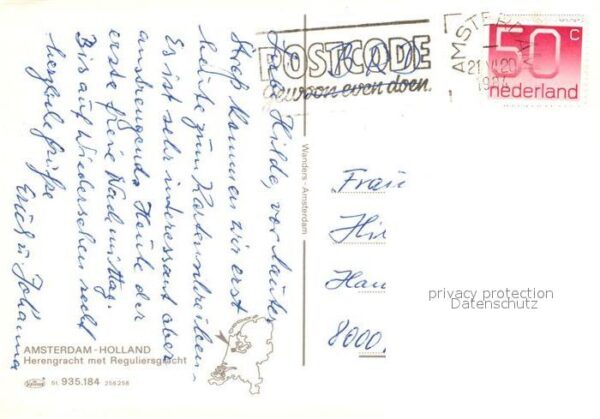 Liebe Hilde, vor lauter
Streß kommen wir erst
heute zum Kartenschreiben.
Es ist sehr interessant aber
anstrengend. Heute der
erste freie Nachmittag.
Bis auf Wiedersehen recht
herzliche Grüße
Erich u. Johanna
POSTCODE
gewoon even doen.
AMSTERDAM
21 VI 20
50 c
nederland
Wanders - Amsterdam
Frau
Hil
Han
8000
privacy protection
Datenschutz
AMSTERDAM - HOLLAND
Herengracht met Reguliersgracht
St. 935.184 256258